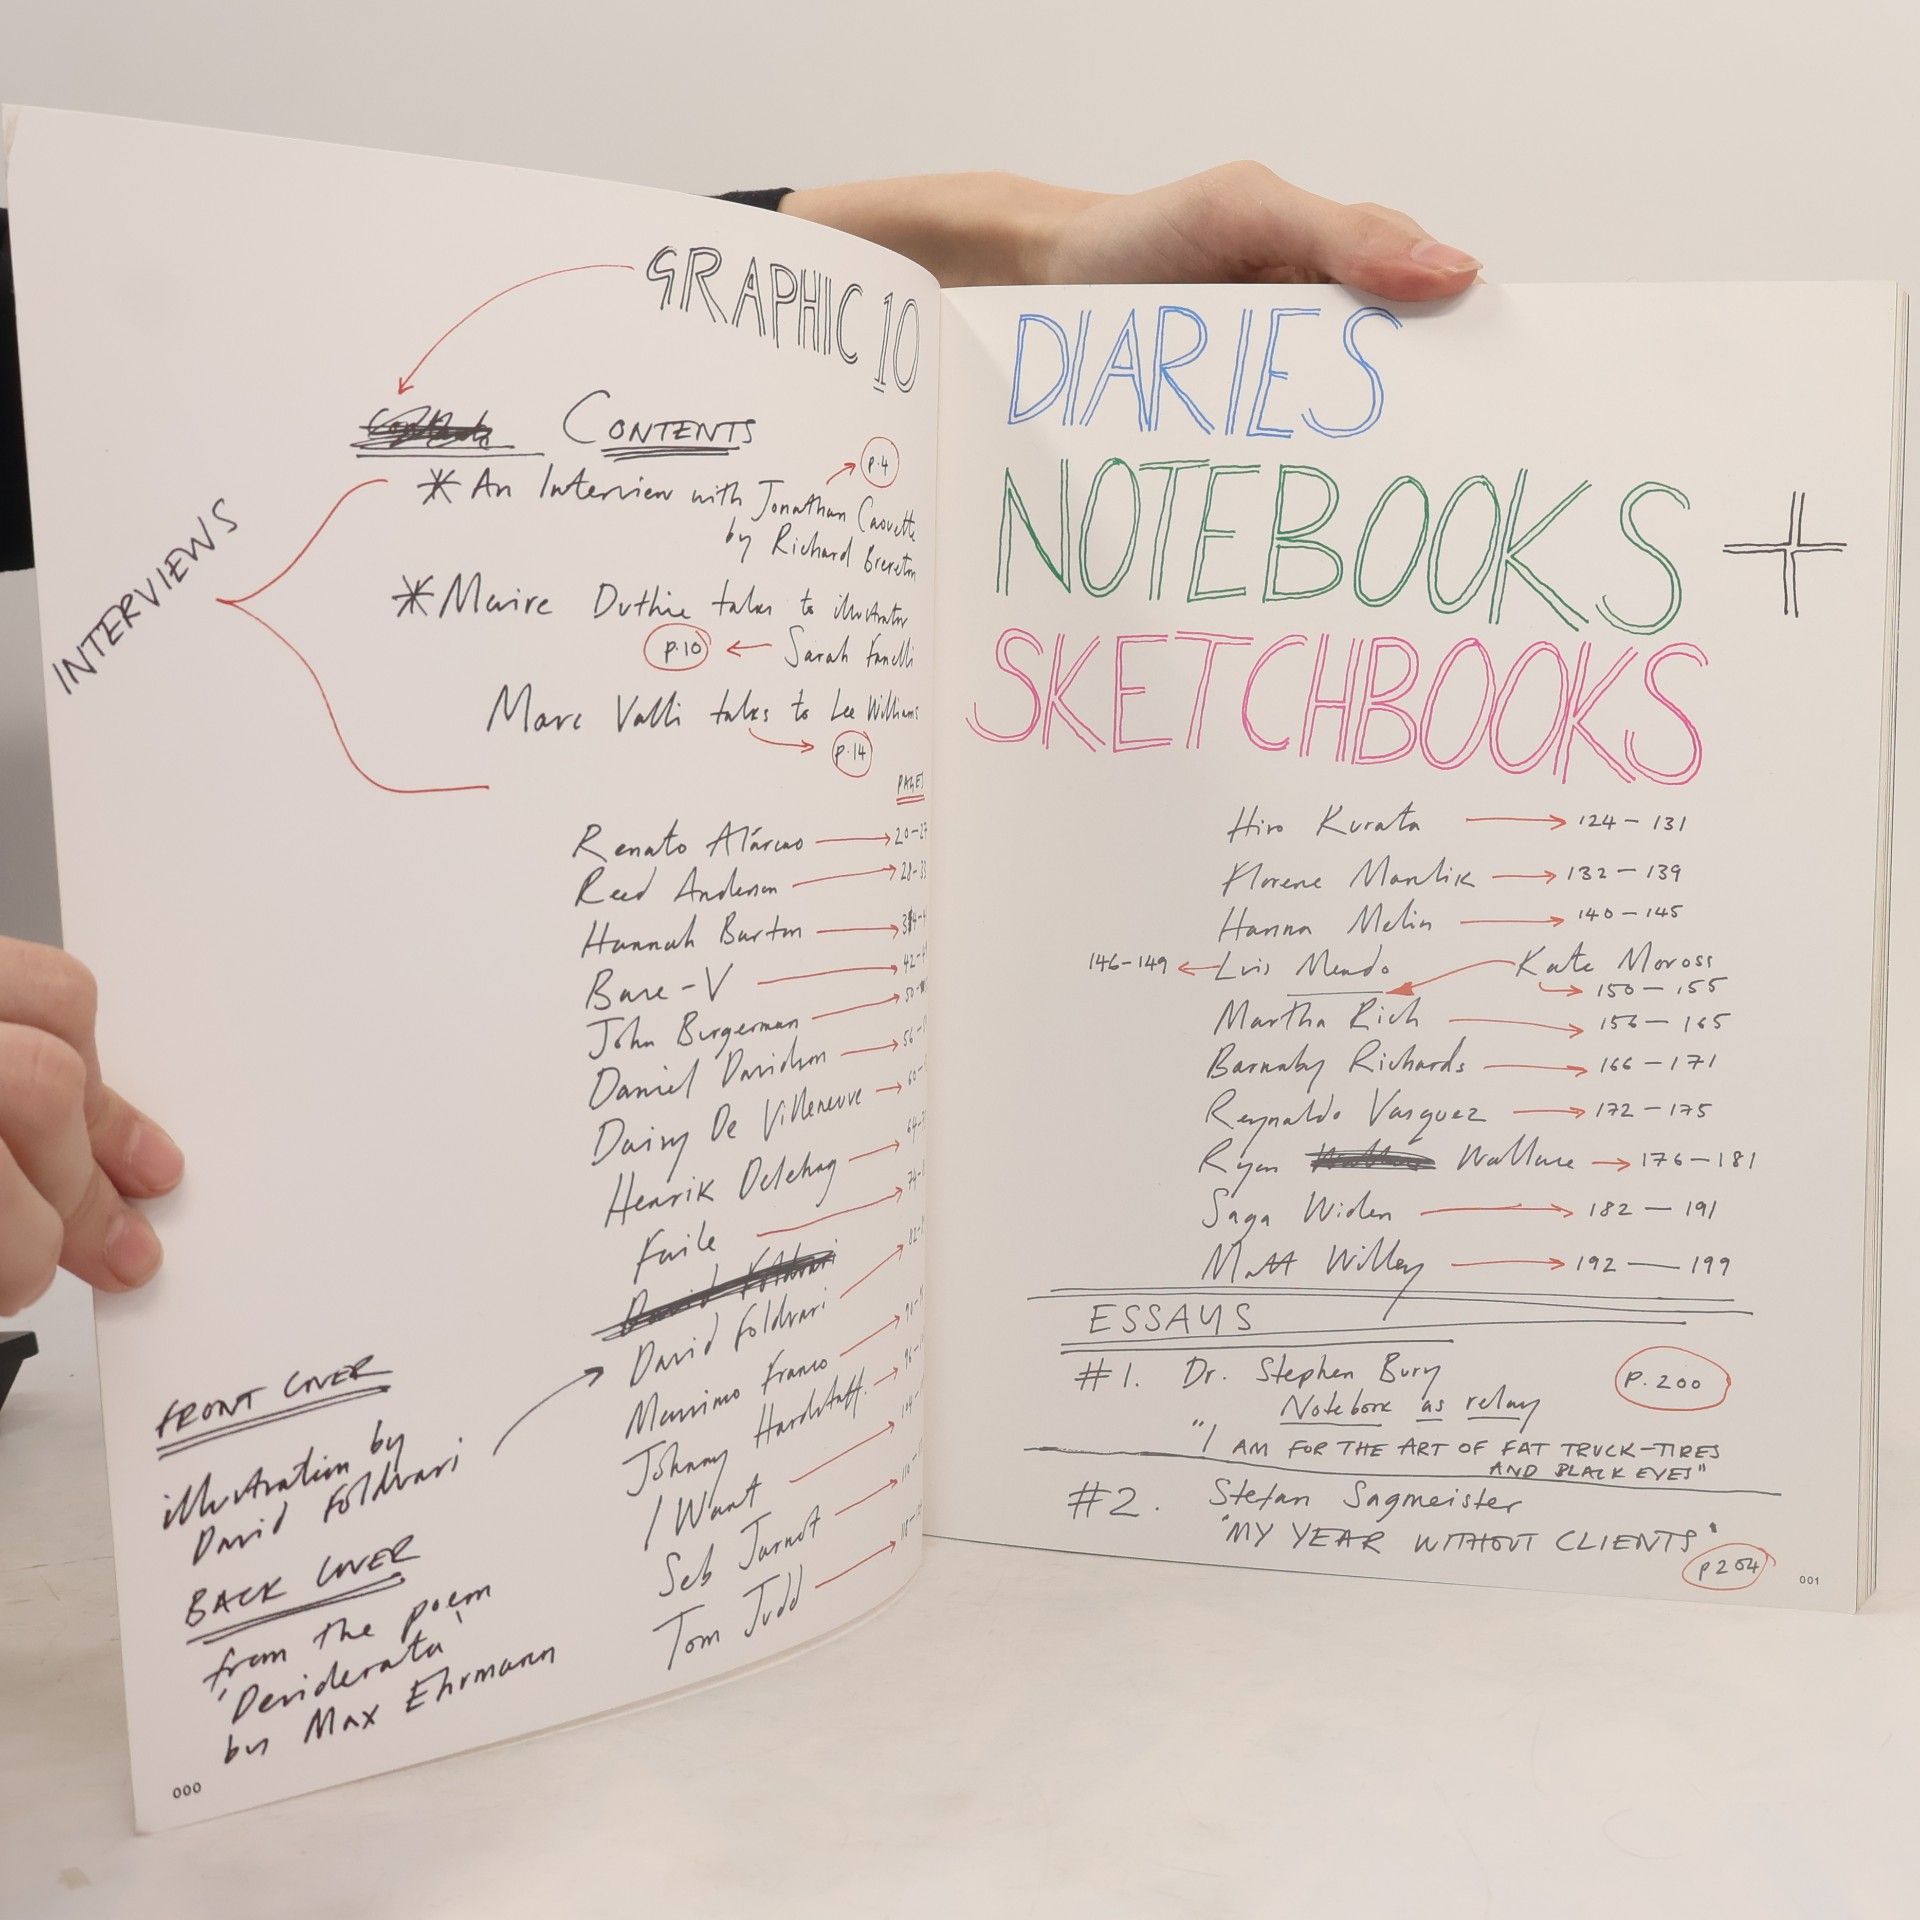 GRAPHIC 10
CONTENTS
INTERVIEWS
* An Interview with Jonathan Caouette
by Richard Brereton
p.4
* Maire Duthie talks to illustrator
Sarah Fanelli
p.10
Marc Valli talks to Lee Williams
p.14
PAGES
Renato Alarcao 20-27
Reed Anderson 28-33
Hannah Barton
Base-V 42-4
John Burgerman 50-
Daniel Davidson 56-
Daisy De Villeneuve 60-
Henrik Delehag 64-
Faile 74-
David Foldvari
David Foldvari 82-
Massimo Franco 90-
Johnny Hardstaff 96-
I Want 104-
Seb Jarnot 110-
Tom Judd 118-
FRONT COVER
illustration by
David Foldvari
BACK COVER
from the poem
'Desiderata'
by Max Ehrmann
000
DIARIES
NOTEBOOKS +
SKETCHBOOKS
Hiro Kurata 124-131
Florene Manlik 132-139
Hanna Melin 140-145
146-149 Luis Mendo Kate Moross
150-155
Martha Rich 156-165
Barnaby Richards 166-171
Reynaldo Vasquez 172-175
Ryan Wallace 176-181
Saga Widen 182-191
Matt Willey 192-199
ESSAYS
#1. Dr. Stephen Bury
p.200
Notebook as relay
"I AM FOR THE ART OF FAT TRUCK-TIRES
AND BLACK EYES"
#2. Stefan Sagmeister
"MY YEAR WITHOUT CLIENTS"
p204
001